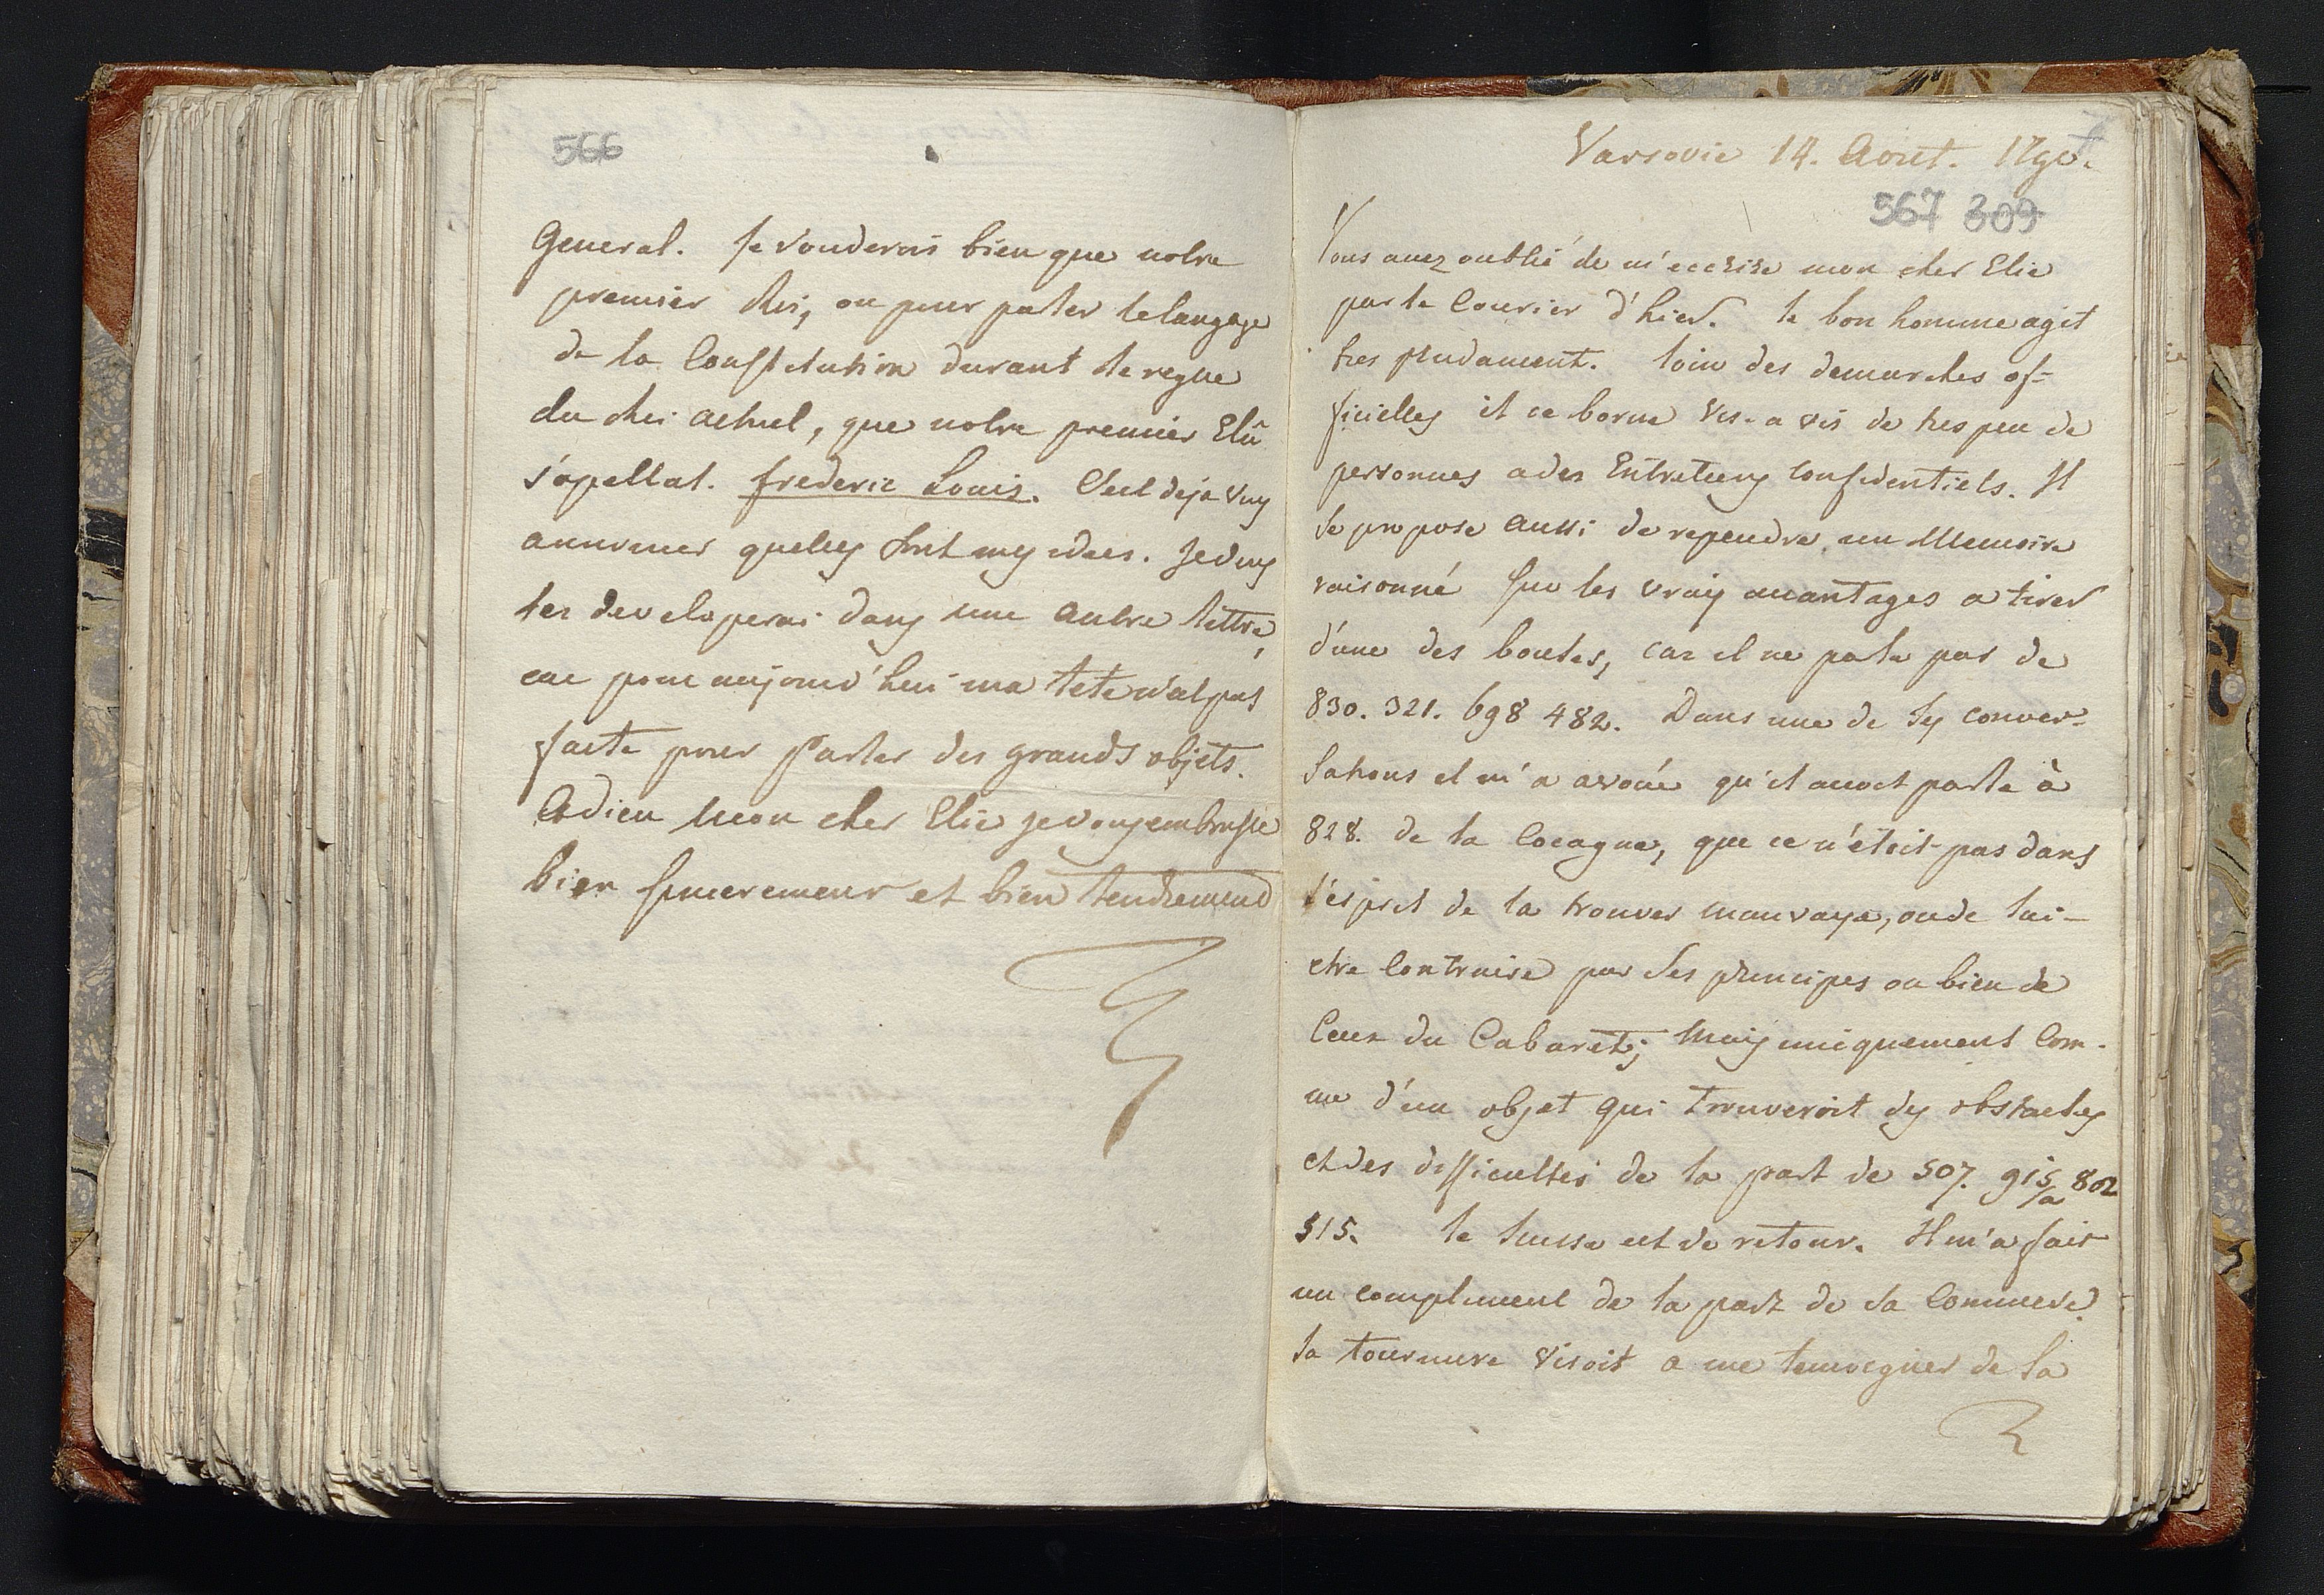 566
General. Je vouderois bien que notre
premier Roi, ou pour parler le langage
de la Constitution durant le regne
du Roi actuel, que notre premier Elû
s'apellat. frederic Louis. C'est deja vus
annoncer quelles sont mes idees. Je vus
les developerai dans une autre lettre,
car pour aujourd'hui ma tete n'at pas
faite pour parler des grands objets.
Adieu mon cher Elie je vous embrasse
bien sincerement et bien tendrement
Varsovie 14. Aout. 1790.
567 309
Vous avez oublié de m'ecrire mon cher Elie
par le Courier d'hier. le bon homme agit
tres prudament. loin des demarches of-
ficielles il ce borne vis-a vis de tres peu de
personnes a des Entretiens confidentiels. Il
se propose aussi de rependre un Memoire
raisonné sur les vrais avantages a tirer
d'une des boules, car il ne parle pas de
830. 321. 698 482. Dans une de ses conver-
sations il m'a avoué qu'il avoit parlé à
828. de la Cocagne, que ce n'étoit pas dans
l'esprit de la trouver mauvaise, ou de lui
etre contraire par ses principes ou bien de
ceux du Cabaret; mais uniquement com-
me d'un objet qui trouveroit des obstacles
et des difficultés de la part de 507. 915/a 802
515. le Suisse est de retour. Il m'a fait
un compliment de la part de sa Commere.
la tournure visoit a me temoigner de la